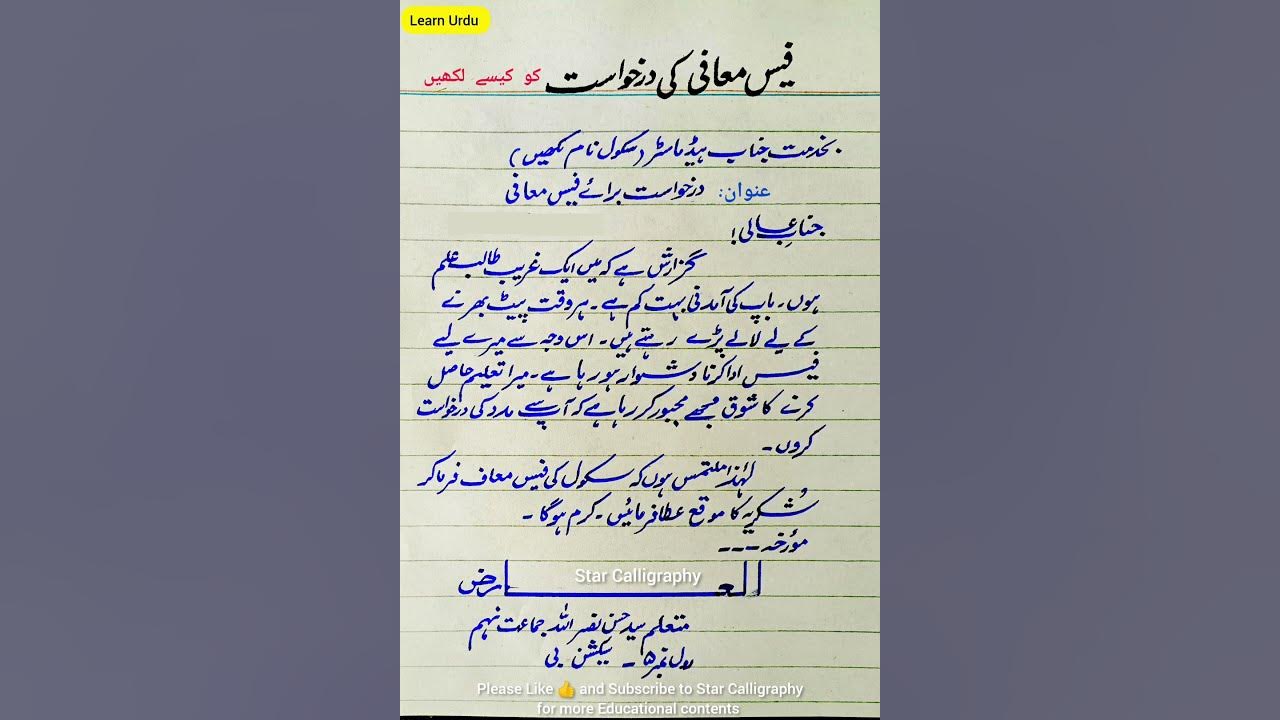 Learn Urdu
فیس معافی کی درخواست کو کیسے لکھیں
بخدمت جناب ہیڈ ماسٹر (سکول نام لکھیں)
عنوان: درخواست برائے فیس معافی
جنابِ عالی!
گزارش ہے کہ میں ایک غریب طالب علم
ہوں۔ باپ کی آمدنی بہت کم ہے۔ ہر وقت پیٹ بھرنے
کے لیے لالے پڑے رہتے ہیں۔ اس وجہ سے میرے لیے
فیس ادا کرنا دشوار ہو رہا ہے۔ میرا تعلیم حاصل
کرنے کا شوق مجھے مجبور کر رہا ہے کہ آپ سے مدد کی درخواست
کروں۔
لہٰذا ملتمس ہوں کہ سکول کی فیس معاف فرما کر
شُکریہ کا موقع عطا فرمائیں۔ کرم ہوگا۔
مؤرخہ ---
العارض
Star Calligraphy
متعلم سید حسن نصر اللہ جماعت نہم
رول نمبر ۵ ۔ سیکشن بی
Please Like 👍 and Subscribe to Star Calligraphy
for more Educational contents